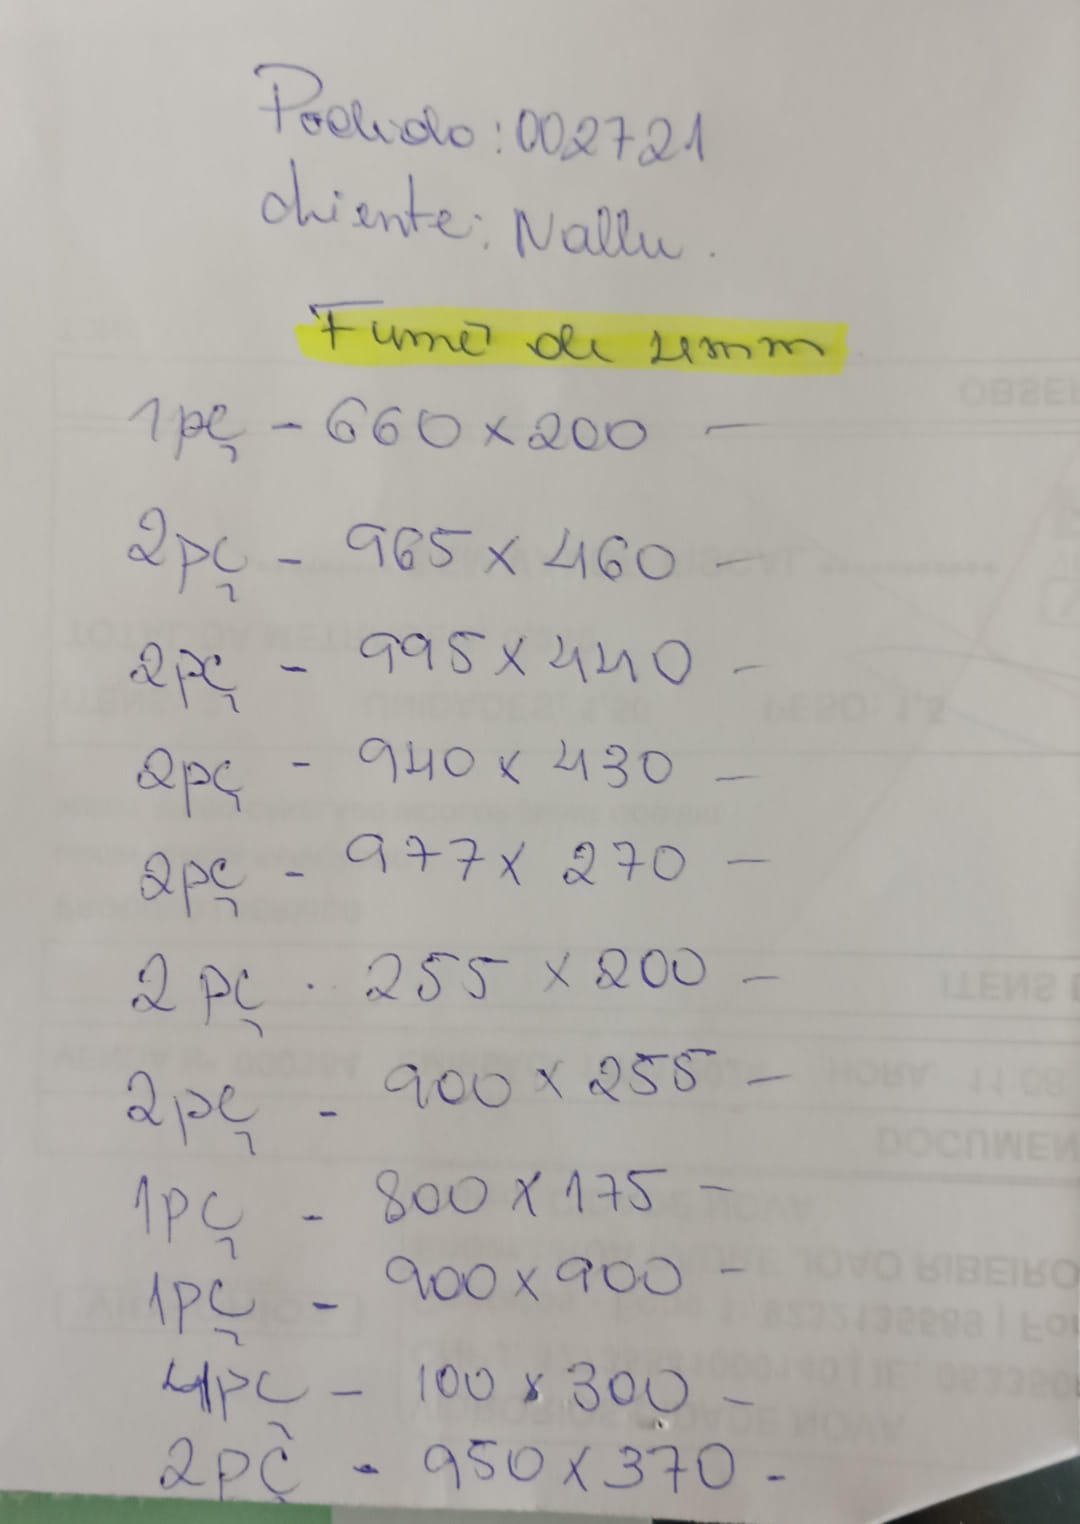 Pedido: 002721
cliente: Nallu.
Fumê de 4mm
1pç - 660 x 200 -
2pç - 965 x 460 -
2pç - 995 x 440 -
2pç - 940 x 430 -
2pç - 977 x 270 -
2pç - 255 x 200 -
2pç - 900 x 255 -
1pç - 800 x 175 -
1pç - 900 x 900 -
4pç - 100 x 300 -
2pç - 950 x 370 -